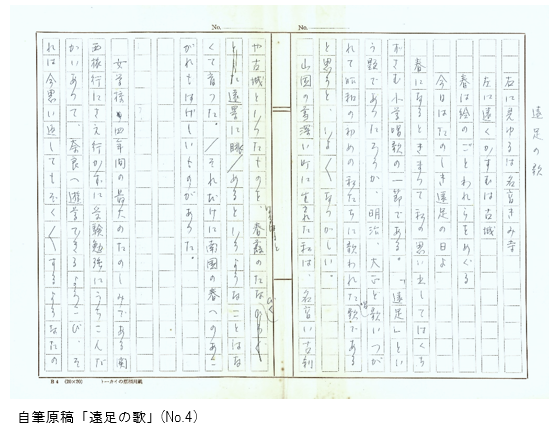 遠足の歌
右に見ゆるは名高きみ寺
左に遠くかすむは古城
春は絵のごとわれらをめぐる
今日はたのしき遠足の日よ
春になるときまって私の思い出してはくち
ずさむ小学唱歌の一節である。「遠足」とい
う題であったろうか、明治、大正と歌いつが
れて昭和の初めの私たちに歌われた歌である
と思うと、
山国の雪深い町に生まれた私は、名高い古刹
や古城といったものを、春霞のたなびく
とした遠景に眺めるというようなことはな
くて育った。それだけに南国の春へのあこ
がれもはげしいものがあった。
女学校四年間の最大のたのしみである関
西旅行にさえ行かずに受験勉強にうちこんだ
かいあって、奈良へ遊学できるよろこび、そ
れは今思い返してもぞく〱するようなもの
No.
No.
B4 (20×20)
自筆原稿「遠足の歌」(No.4)